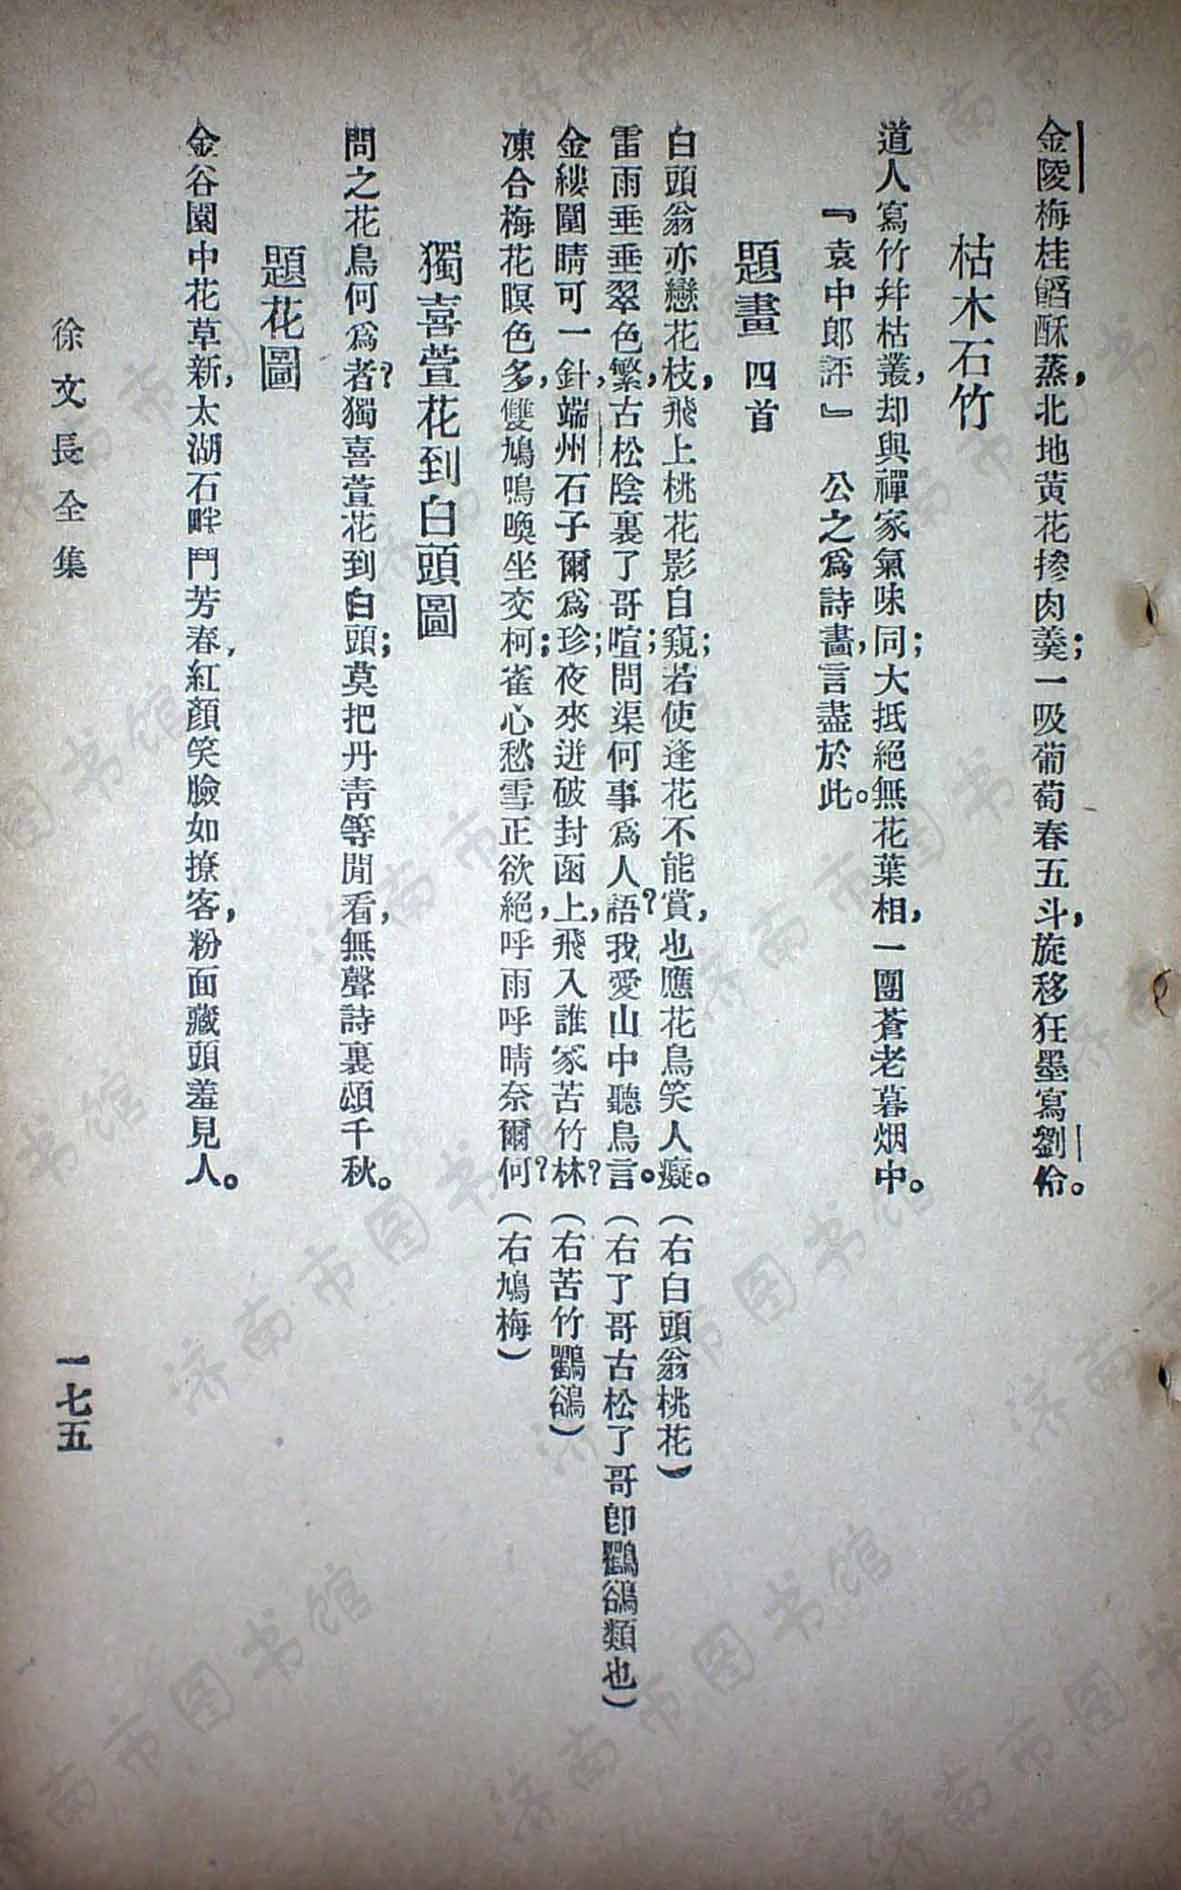 金陵梅桂餡酥蒸,北地黄花摻肉羹;一吸葡萄春五斗,旋移狂墨寫劉伶。
枯木石竹
道人寫竹并枯叢,却與禪家氣味同;大抵絕無花葉相,一團蒼老暮烟中。
『袁中郎評』 公之爲詩畫,言盡於此。
題畫 四首
白頭翁亦戀花枝,飛上桃花影自窺;若使逢花不能賞,也應花鳥笑人癡。(右白頭翁桃花)
雷雨垂垂翠色繁,古松陰裏了哥喧;問渠何事爲人語?我愛山中聽鳥言。(右了哥古松了哥卽鸜鵒類也)
金縷圍晴可一針,端州石子爾爲珍;夜來迸破封函上,飛入誰家苦竹林?(右苦竹鸜鵒)
凍合梅花暝色多,雙鳩鳴喚坐交柯;雀心愁雪正欲絕,呼雨呼晴奈爾何?(右鳩梅)
獨喜萱花到白頭圖
問之花鳥何爲者?獨喜萱花到白頭;莫把丹青等閒看,無聲詩裏頌千秋。
題花圖
金谷園中花草新,太湖石畔鬥芳春,紅顏笑臉如撩客,粉面藏頭羞見人。
徐文長全集
一七五
济南市图书馆